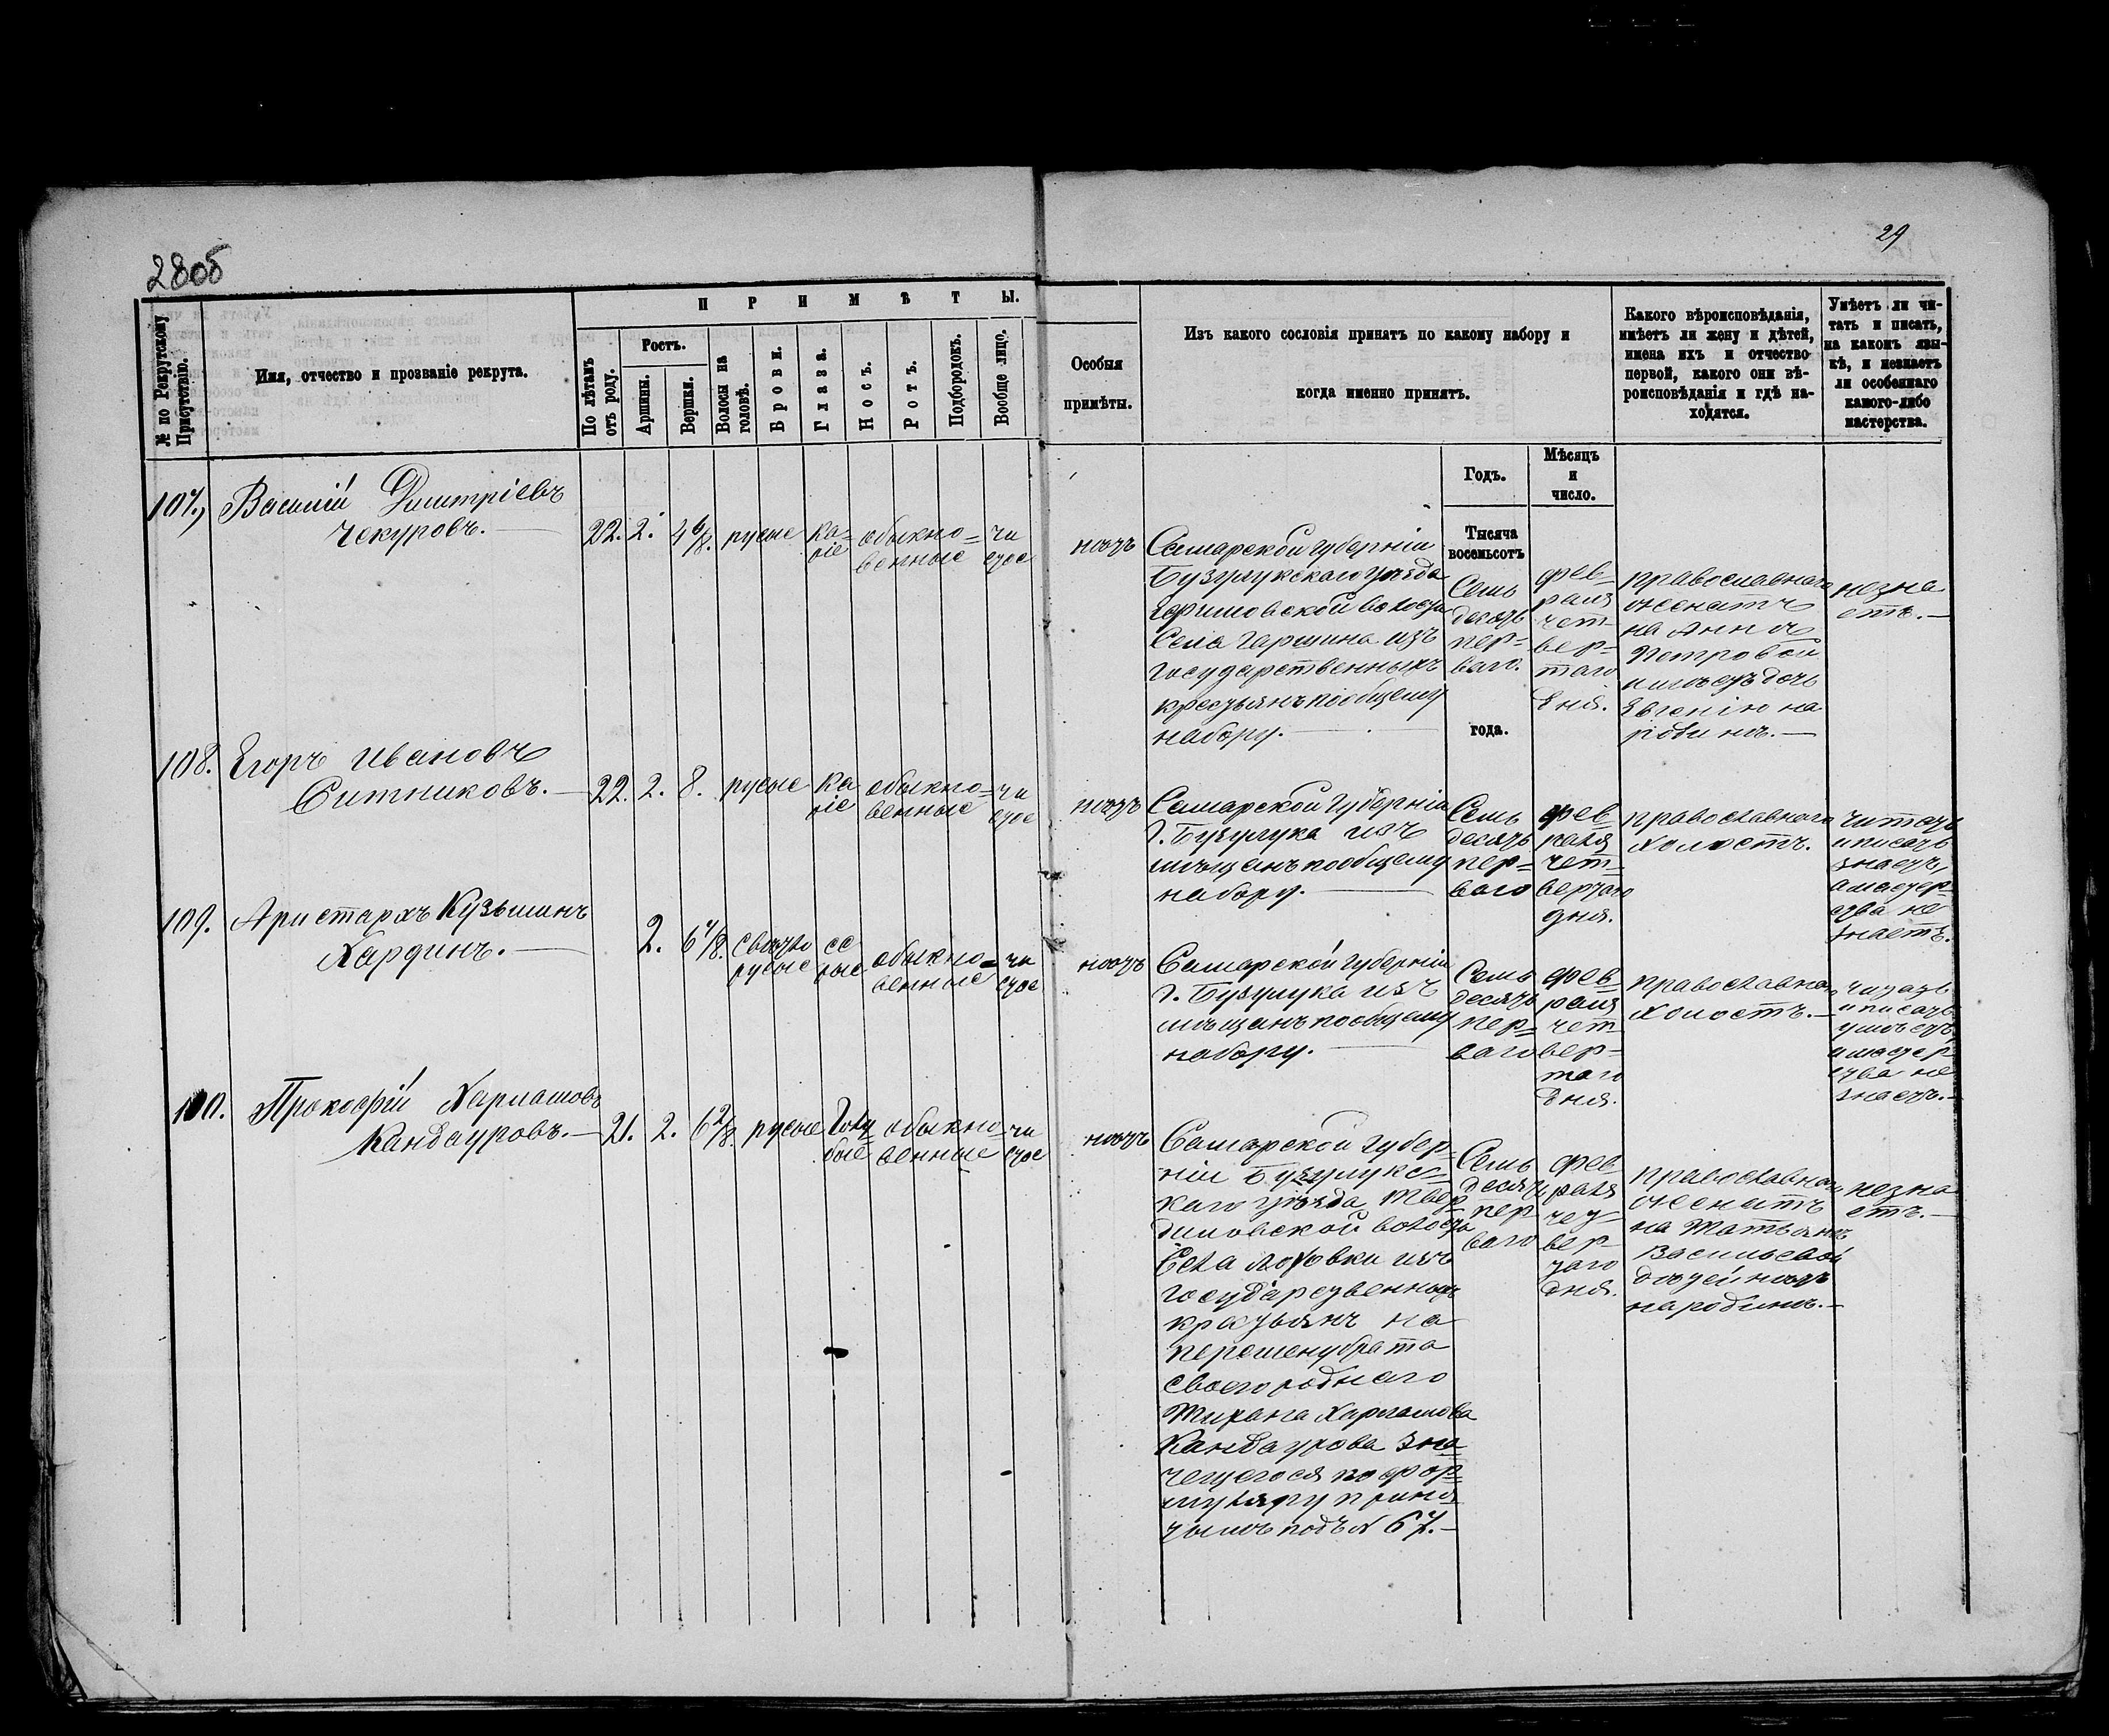 280б
29
№ по Рекрутскому Присутствію.
Имя, отчество и прозваніе рекрута.
П Р И М Ѣ Т Ы.
По лѣтамъ отъ роду.
Ростъ.
Аршины.
Вершки.
Волосы на головѣ.
Брови.
Глаза.
Носъ.
Ротъ.
Подбородокъ.
Вообще лицо.
Особыя
примѣты.
Изъ какого сословія принятъ по какому набору и
когда именно принятъ.
Какого вѣроисповѣданія,
имѣетъ ли жену и дѣтей,
имена ихъ и отчество
первой, какого они вѣ-
роисповѣданія и гдѣ на-
ходятся.
Умѣетъ ли чи-
тать и писать,
на какомъ язы-
кѣ, и незнаетъ
ли особеннаго
какого-либо
мастерства.
Годъ.
Мѣсяцъ
и
число.
107, Василій Дмитріевъ
Чекуровъ.
22. 2. 4 6/8. русые ка-
ріе
обыкно=
венные
чи
стое
нѣтъ
Самарской губерніи
Бузулукскаго уѣзда
Ефимовской волости
Села Гаршина изъ
Государственныхъ
крестьянъ по общему
набору.
Тысяча
восемьсотъ
Семь
десятъ
пер=
ваго.
года.
фев=
раля
чет
вер=
таго
дня.
православнаго
женатъ
на Аннѣ
Петровой
имѣетъ дочь
Евгенію на
родинѣ.
незна
етъ.
108. Егоръ Ивановъ
Ситниковъ.
22. 2. 8. русые ка
ріе
обыкно=
венные
чи
стое
нѣтъ
Самарской Губерніи
Г. Бузулука изъ
мѣщанъ по общему
набору.
Семь
десятъ
пер=
ваго
фев
раля
чет=
вертаго
дня.
православнаго
холостъ.
читать
и писать
знаетъ,
а мастер=
ства не
знаетъ.
109. Аристархъ Кузьминъ
Хардинъ.
2. 6 4/8. свѣтло
русые
се
рые
обыкно=
венные
чи
стое
нѣтъ
Самарской губерніи
Г. Бузулука изъ
мѣщанъ по общему
набору.
Семь
десятъ
пер=
ваго
фев=
раля
чет=
вер=
таго
дня.
православнаго
холостъ.
читать
и писать
умѣетъ,
а мастер
ства не
знаетъ.
110. Прокофій Харламовъ
Кандауровъ.
21. 2. 6 2/8. русые Голу
бые
обыкно
венные
чи
стое
нѣтъ
Самарской Губер=
ніи Бузулукс=
каго уѣзда
волости
Села изъ
Государственныхъ
крестьянъ на
перемену брата
своего роднаго
Харламова
Кандаурова зна
чещегося по фор=
муляру приня
тымъ подъ № 67.
Семь
десятъ
пер
ваго
фев
раля
чет
вер=
таго
дня.
православнаго
женатъ
на Татьянѣ
Васильевой
дѣтей нѣтъ
на родинѣ.
незна
етъ.